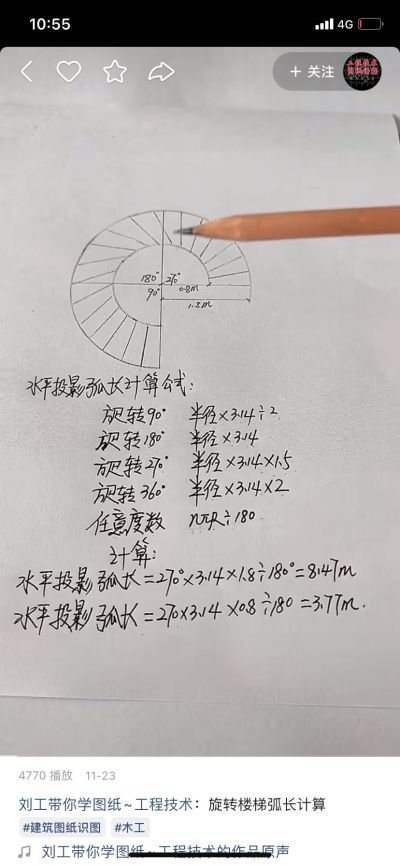 10:55
4G
+ 关注
工程技术
180° 270°
90° 0.8m
1.8m
水平投影弧长计算公式:
旋转90° 半径×3.14÷2
旋转180° 半径×3.14
旋转270° 半径×3.14×1.5
旋转360° 半径×3.14×2
任意度数 nπR÷180
计算:
水平投影弧长=270°×3.14×1.8÷180°=8.47m
水平投影弧长=270×3.14×0.8÷180=3.77m.
4770 播放 11-23
刘工带你学图纸~工程技术: 旋转楼梯弧长计算
#建筑图纸识图 #木工
刘工带你学图纸~工程技术的作品原声